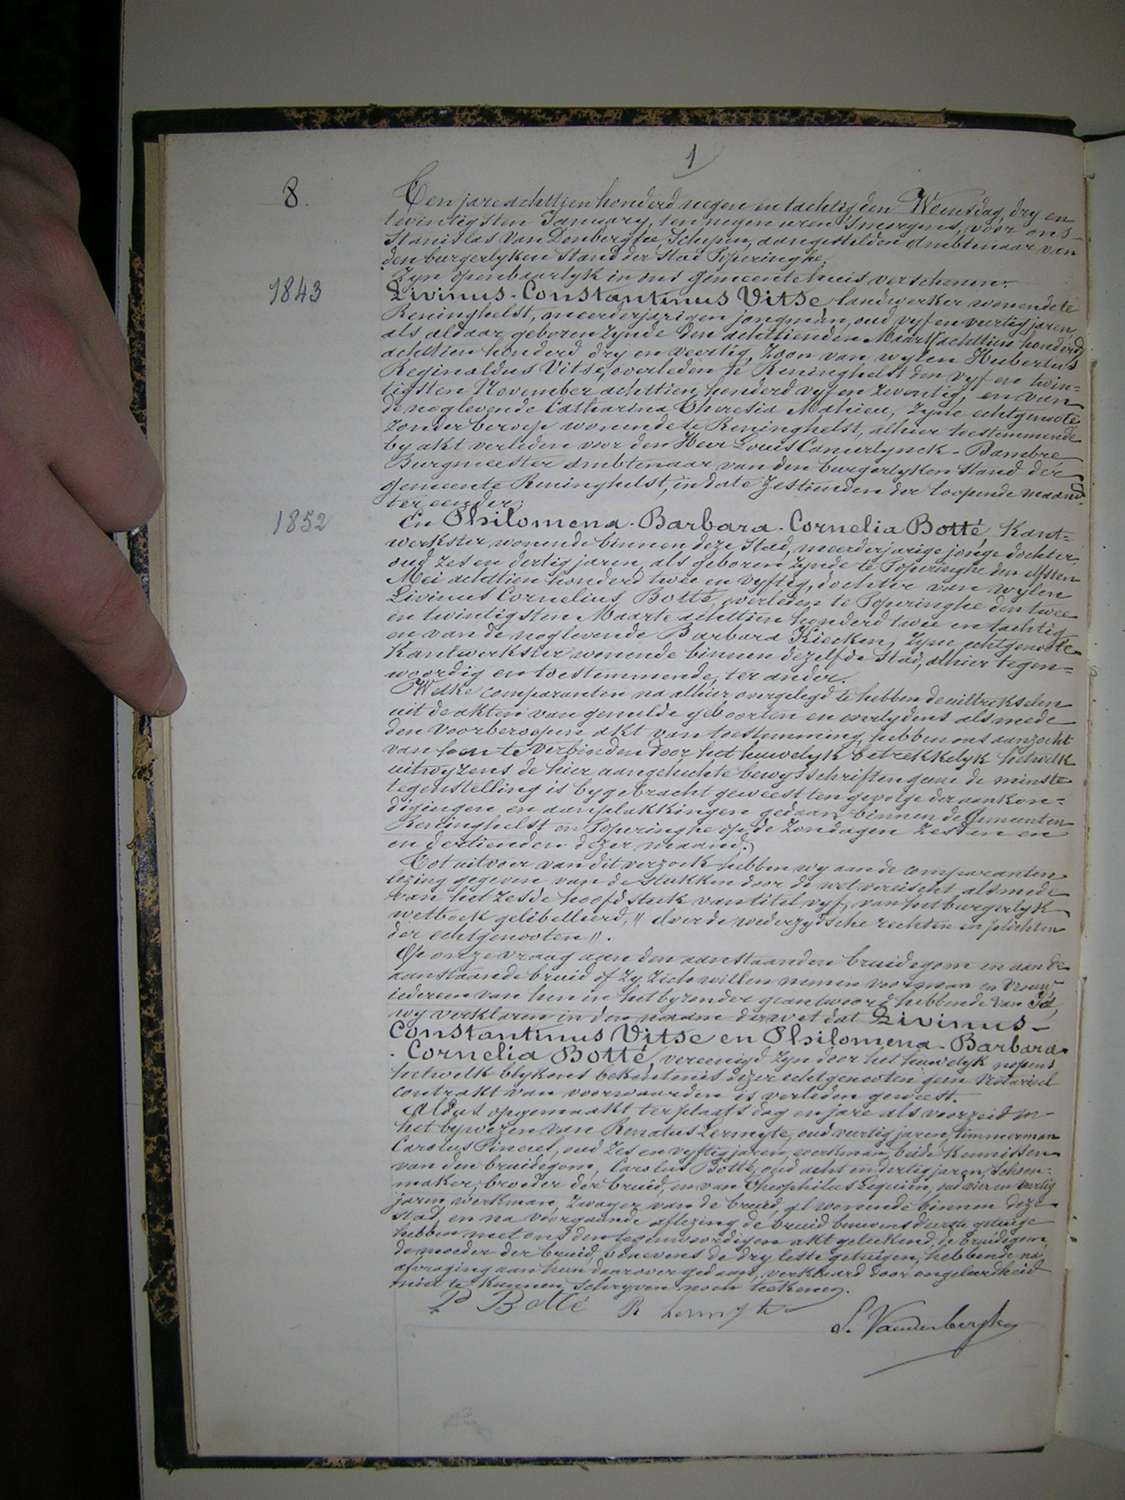 1
8.
Ten jare achttien honderd negen en tachtig den Woensdag, dry en
twintigsten January, ten negen uren smorgens, voor ons
Stanislas Van Denberghe, Schepen, aangestelden ambtenaar van
den burgerlyken stand der Stad Poperinghe,
Zyn openbaarlyk in ons gemeentehuis verschenen:
1843
Livinus-Constantinus Vitse, landwerker wonende te
Reninghelst, meerderjarigen jongman, oud vyf en veertig jaren,
als aldaar geboren zynde den achttienden Maart achttien honderd
achttien honderd dry en veertig, zoon van wylen Hubertus
Reginaldus Vitse, overleden te Reninghelst den vyf en twin=
tigsten November achttien honderd vyf en zeventig, en van
de noglevende Catharina Theresia Mahieu, zyne echtgenoote
zonder beroep wonende te Reninghelst, alhier toestemmende
by akt verleden voor den Heer Louis Camerlynck-Bambre
Burgmeester ambtenaar van den burgerlyken stand der
gemeente Reninghelst, in date zestienden der loopende maand
ter eender;
1852
En Philomena-Barbara-Cornelia Botté, Kant=
werkster wonende binnen deze Stad, meerderjarige jonge dochter,
oud zes en dertig jaren, als geboren zynde te Poperinghe den elfsten
Mei achttien honderd twee en vyftig, dochter van wylen
Livinus Cornelius Botté, overleden te Poperinghe den twee
en twintigsten Maarte achttien honderd twee en tachtig
en van de noglevende Barbara Kiecken, zyne echtgenoote
Kantwerkster wonende binnen dezelfde Stad, alhier tegen=
woordig en toestemmende, ter ander.
Welke comparanten na alhier overgelegd te hebben de uittrekselen
uit de akten van gemelde geboorten en overlydens alsmede
den voorberoepen akt van toestemming, hebben ons aanzocht
van hen te verbinden door het huwelyk betrekkelyk hetwelk
uitwyzens de hier aangehechte bewysschriften geene de minste
tegenstelling is bygebracht geweest ten gevolge der aankon=
digingen en aanplakkingen gedaan binnen de Gemeenten
Reninghelst en Poperinghe op de Zondagen zesten en
en dertienden dezer maand.
Tot uitvoer van dit verzoek hebben wy aan de comparanten
lezing gegeven van de stukken door de wet vereischt, alsmede
van het zesde hoofdstuk van titel vyf, van het burgerlyk
wetboek gelibelleerd, "over de wederzydsche rechten en plichten
der echtgenooten".
Op onze vraag aan den aanstaanden bruidegom en aan de
aanstaande bruid of zy zich willen nemen voor man en vrouw
iedereen van hun in het byzonder geantwoord hebbende van Ja,
wy verklaren in den naam der wet dat Livinus-
Constantinus Vitse en Philomena-Barbara-
-Cornelia Botté, vereenigd zyn door het huwelyk nopens
hetwelk blykens bekentenis dezer echtgenooten geen notarieel
contrakt van voorwaarden is verleden geweest.
Aldus opgemaakt ter plaats dag en jare als voorzeid in
het bywezen van Renatus Lermyte, oud veertig jaren, timmerman
Carolus Pinceel, oud zes en vyftig jaren, werkman, beide kennissen
van den bruidegom, Carolus Botté, oud acht en dertig jaren, schoen-
maker, broeder der bruid, en van Theophilus Lequien, oud vier en veertig
jaren, werkman, zwager van de bruid, al wonende binnen deze
Stad, en na voorgaande aflezing de bruid benevens de eerste getuige
hebben met ons den tegenwoordigen akt geteekend, de bruidegom,
de moeder der bruid, benevens de dry leste getuigen, hebbende na
afvraging aan hun daarover gedaan, verklaard door ongeleerdheid
niet te kunnen schryven noch teekenen.
P Botté R Lermyte
S. Vandenberghe